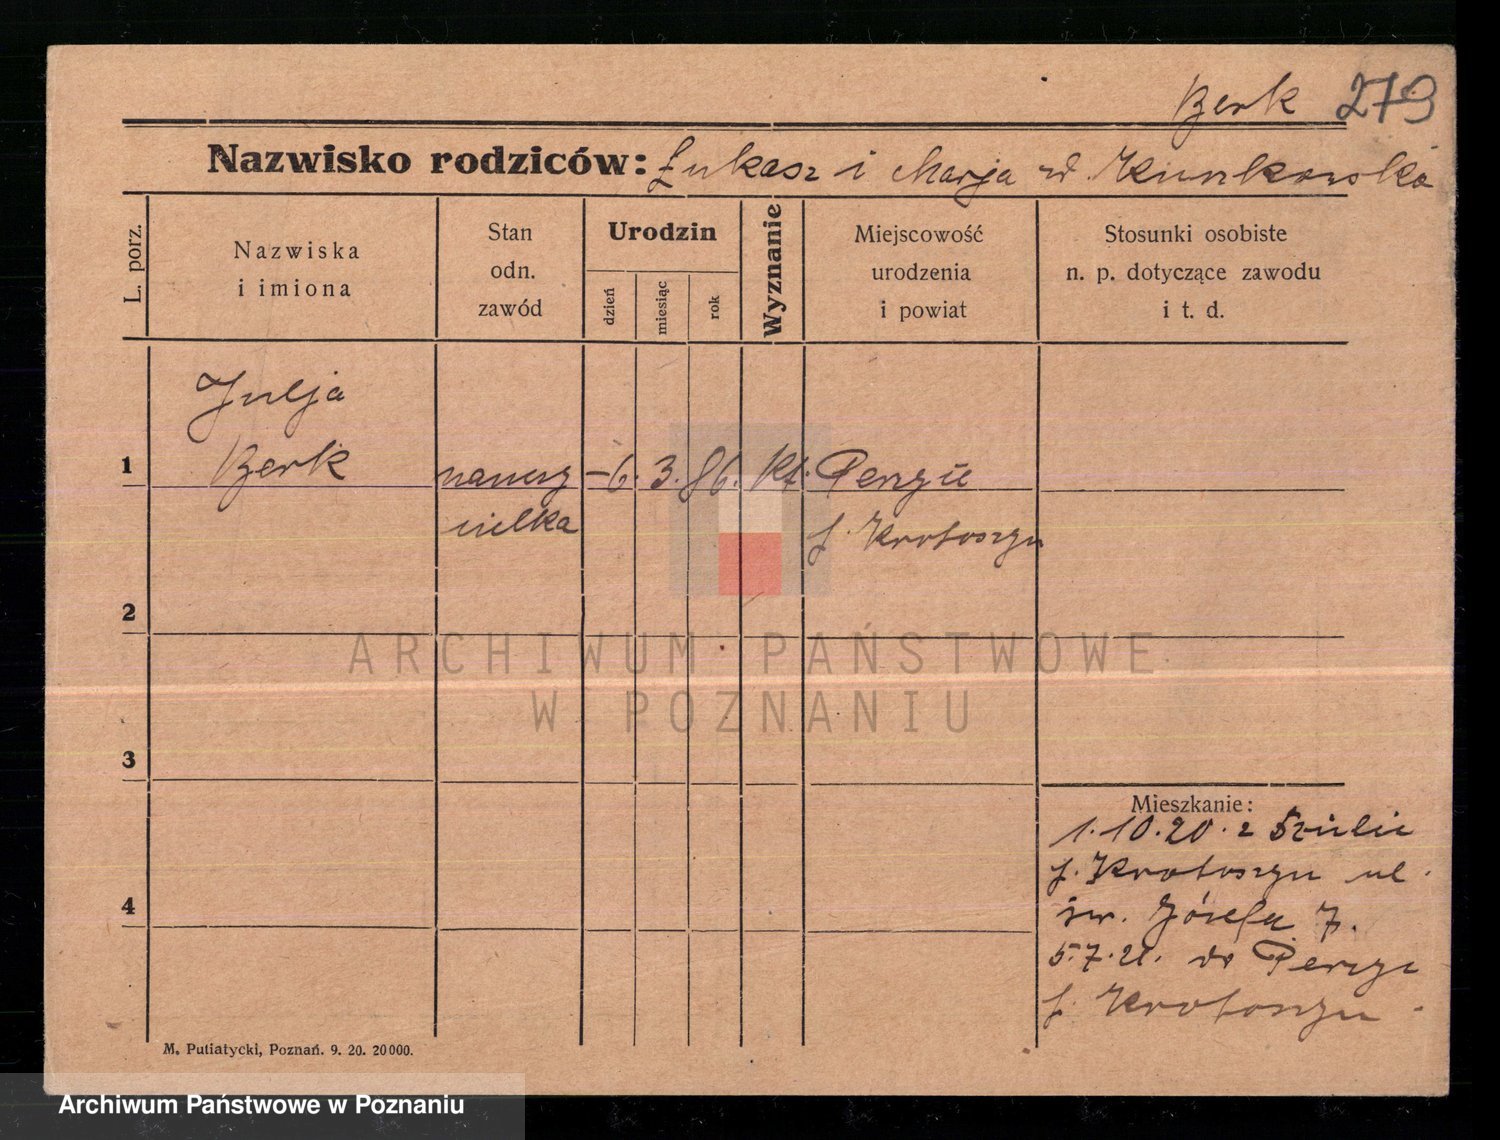 Berk 279
Nazwisko rodziców: Łukasz i Marja d. Kunkowska
L. porz.
Nazwiska
i imiona
Stan
odn.
zawód
Urodzin
dzień
miesiąc
rok
Wyznanie
Miejscowość
urodzenia
i powiat
Stosunki osobiste
n. p. dotyczące zawodu
i t. d.
Julja
1 Berk nauczy- 6. 3. 86. kt. Perzyce
cielka p. Krotoszyn
2
3
4
Mieszkanie:
1.10.20. z
p. Krotoszyn ul.
św. Józefa 7.
5.7.21. do Perzyc
p. Krotoszyn
M. Putiatycki, Poznań. 9. 20. 20000.
ARCHIWUM PAŃSTWOWE
W POZNANIU
Archiwum Państwowe w Poznaniu